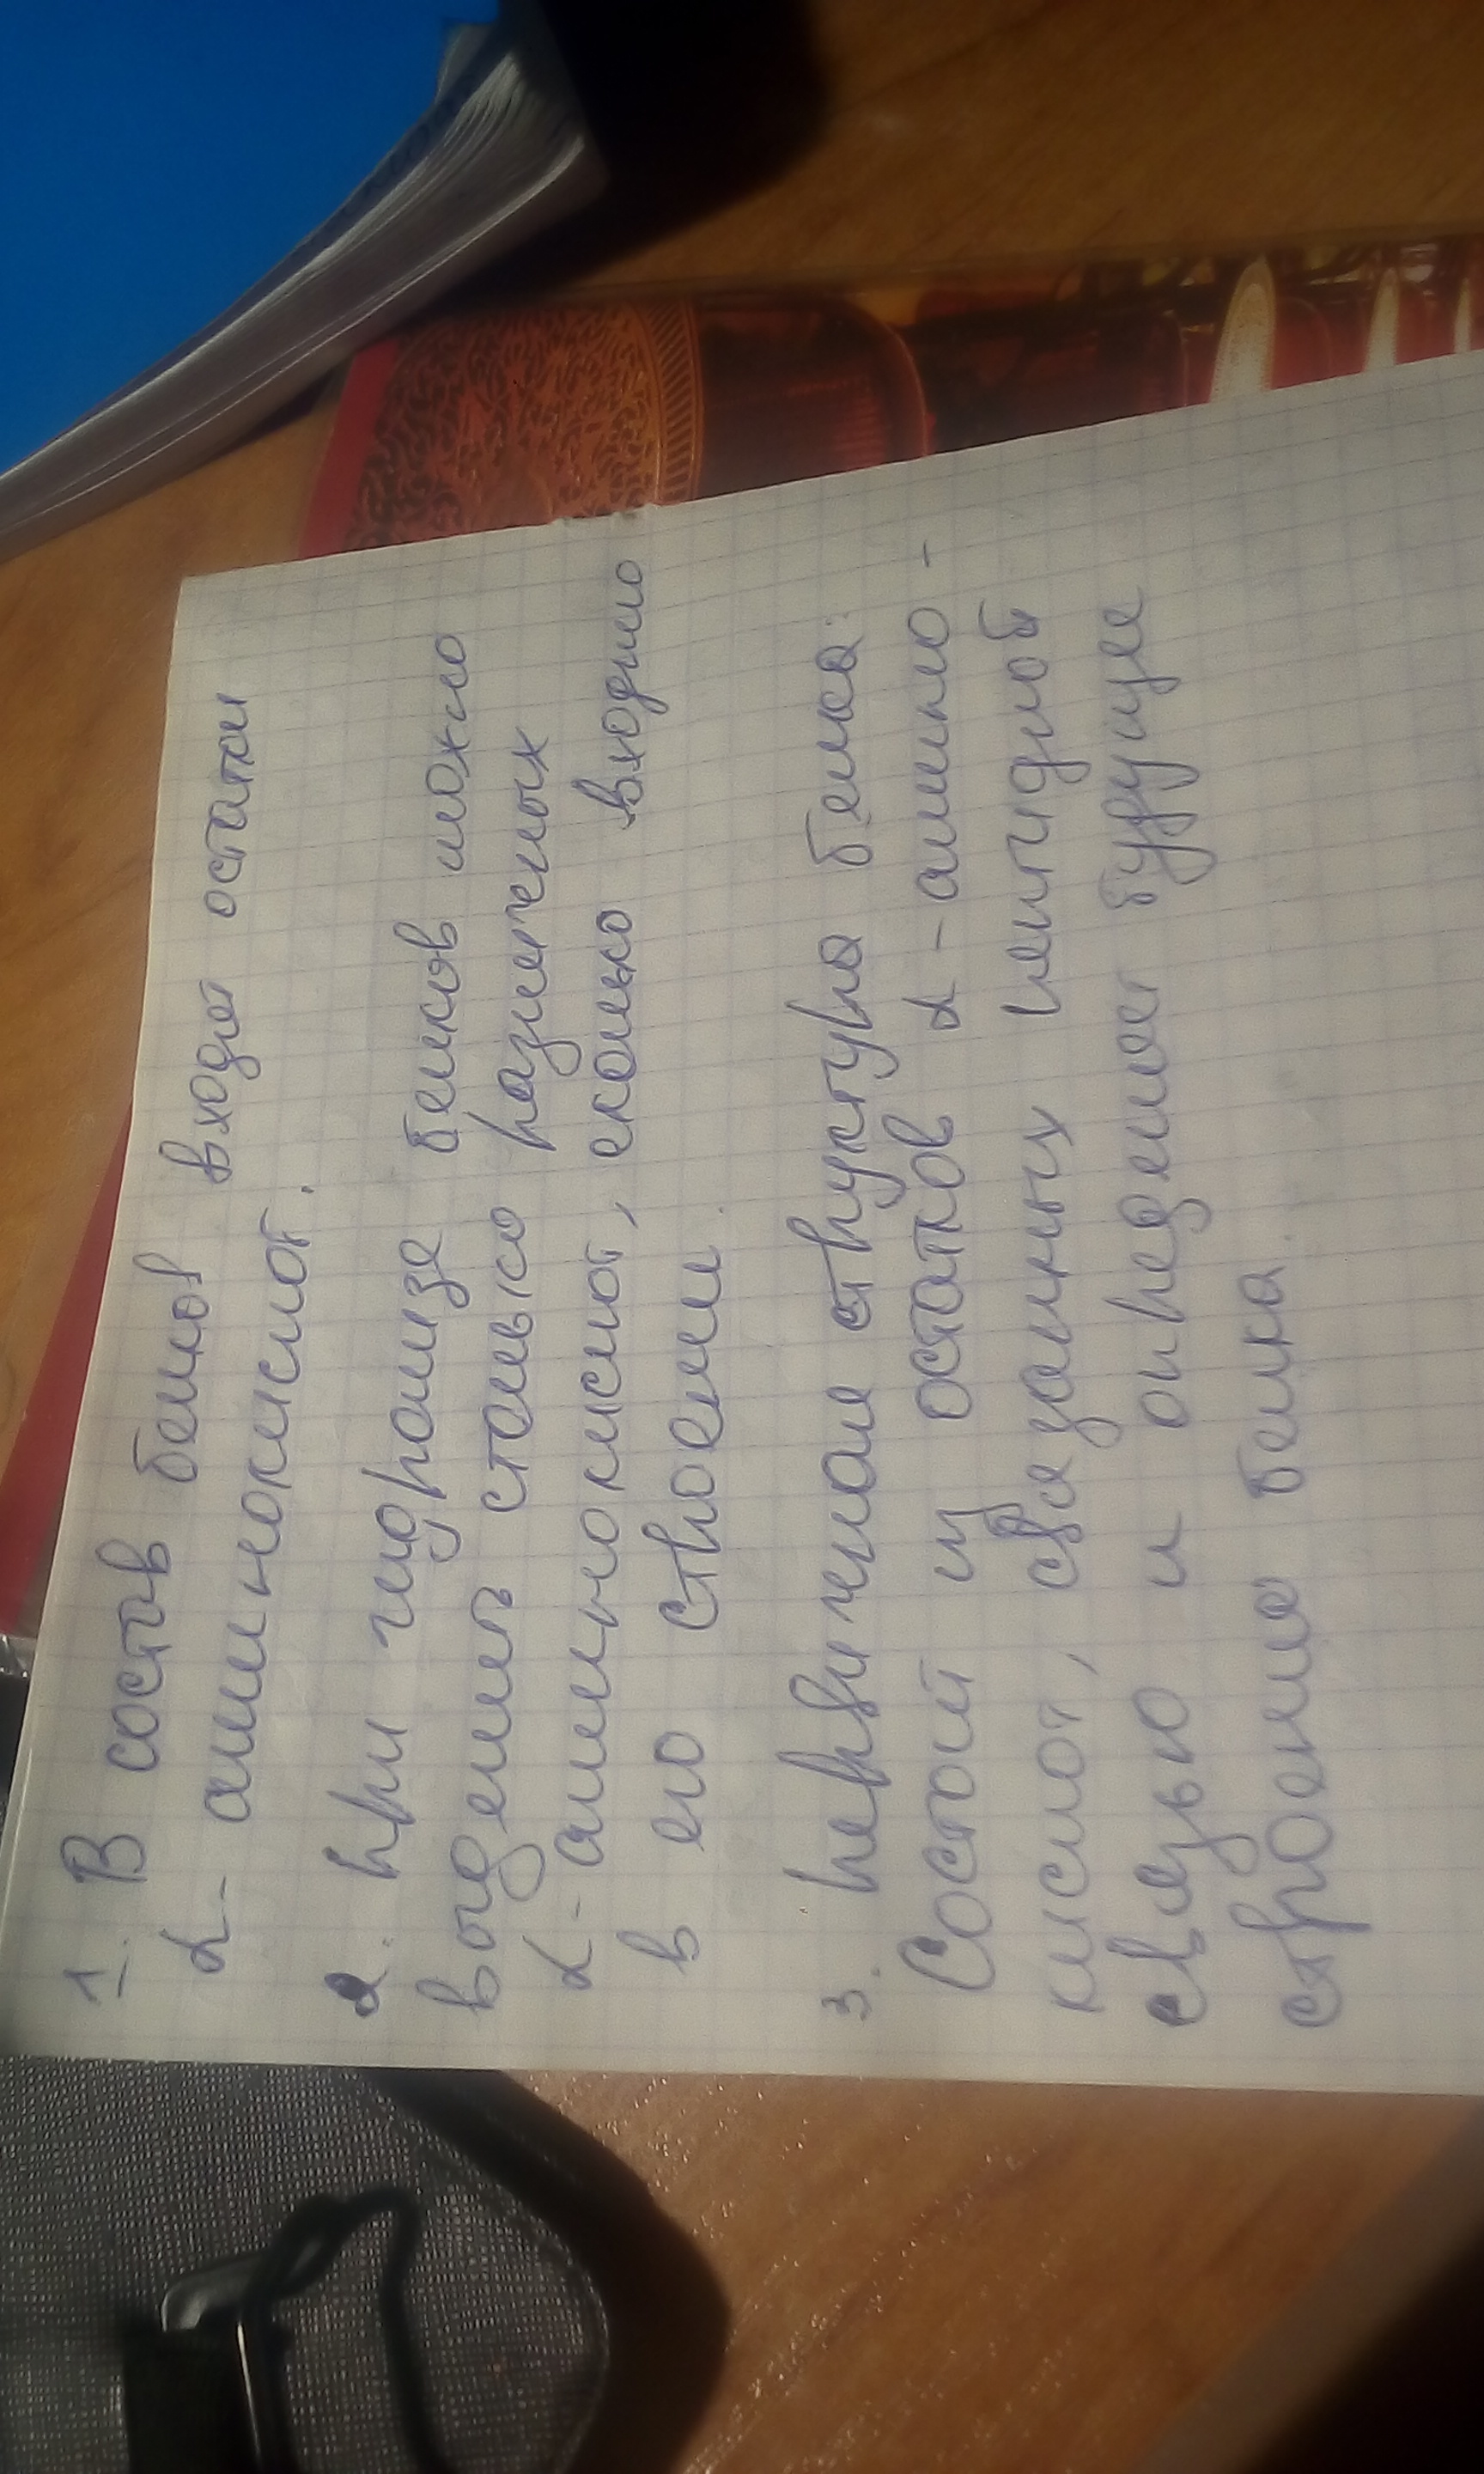 1. В состав белков входят остатки
α- аминокислот.
2. при гидролизе белков можно
выделить столько различных
α- аминокислот, сколько входило
в его строение.
3. первичная структура белка:
Состоит из остатков α - амино -
кислот, связанных пептидной
связью и определяет будущее
строение белка.